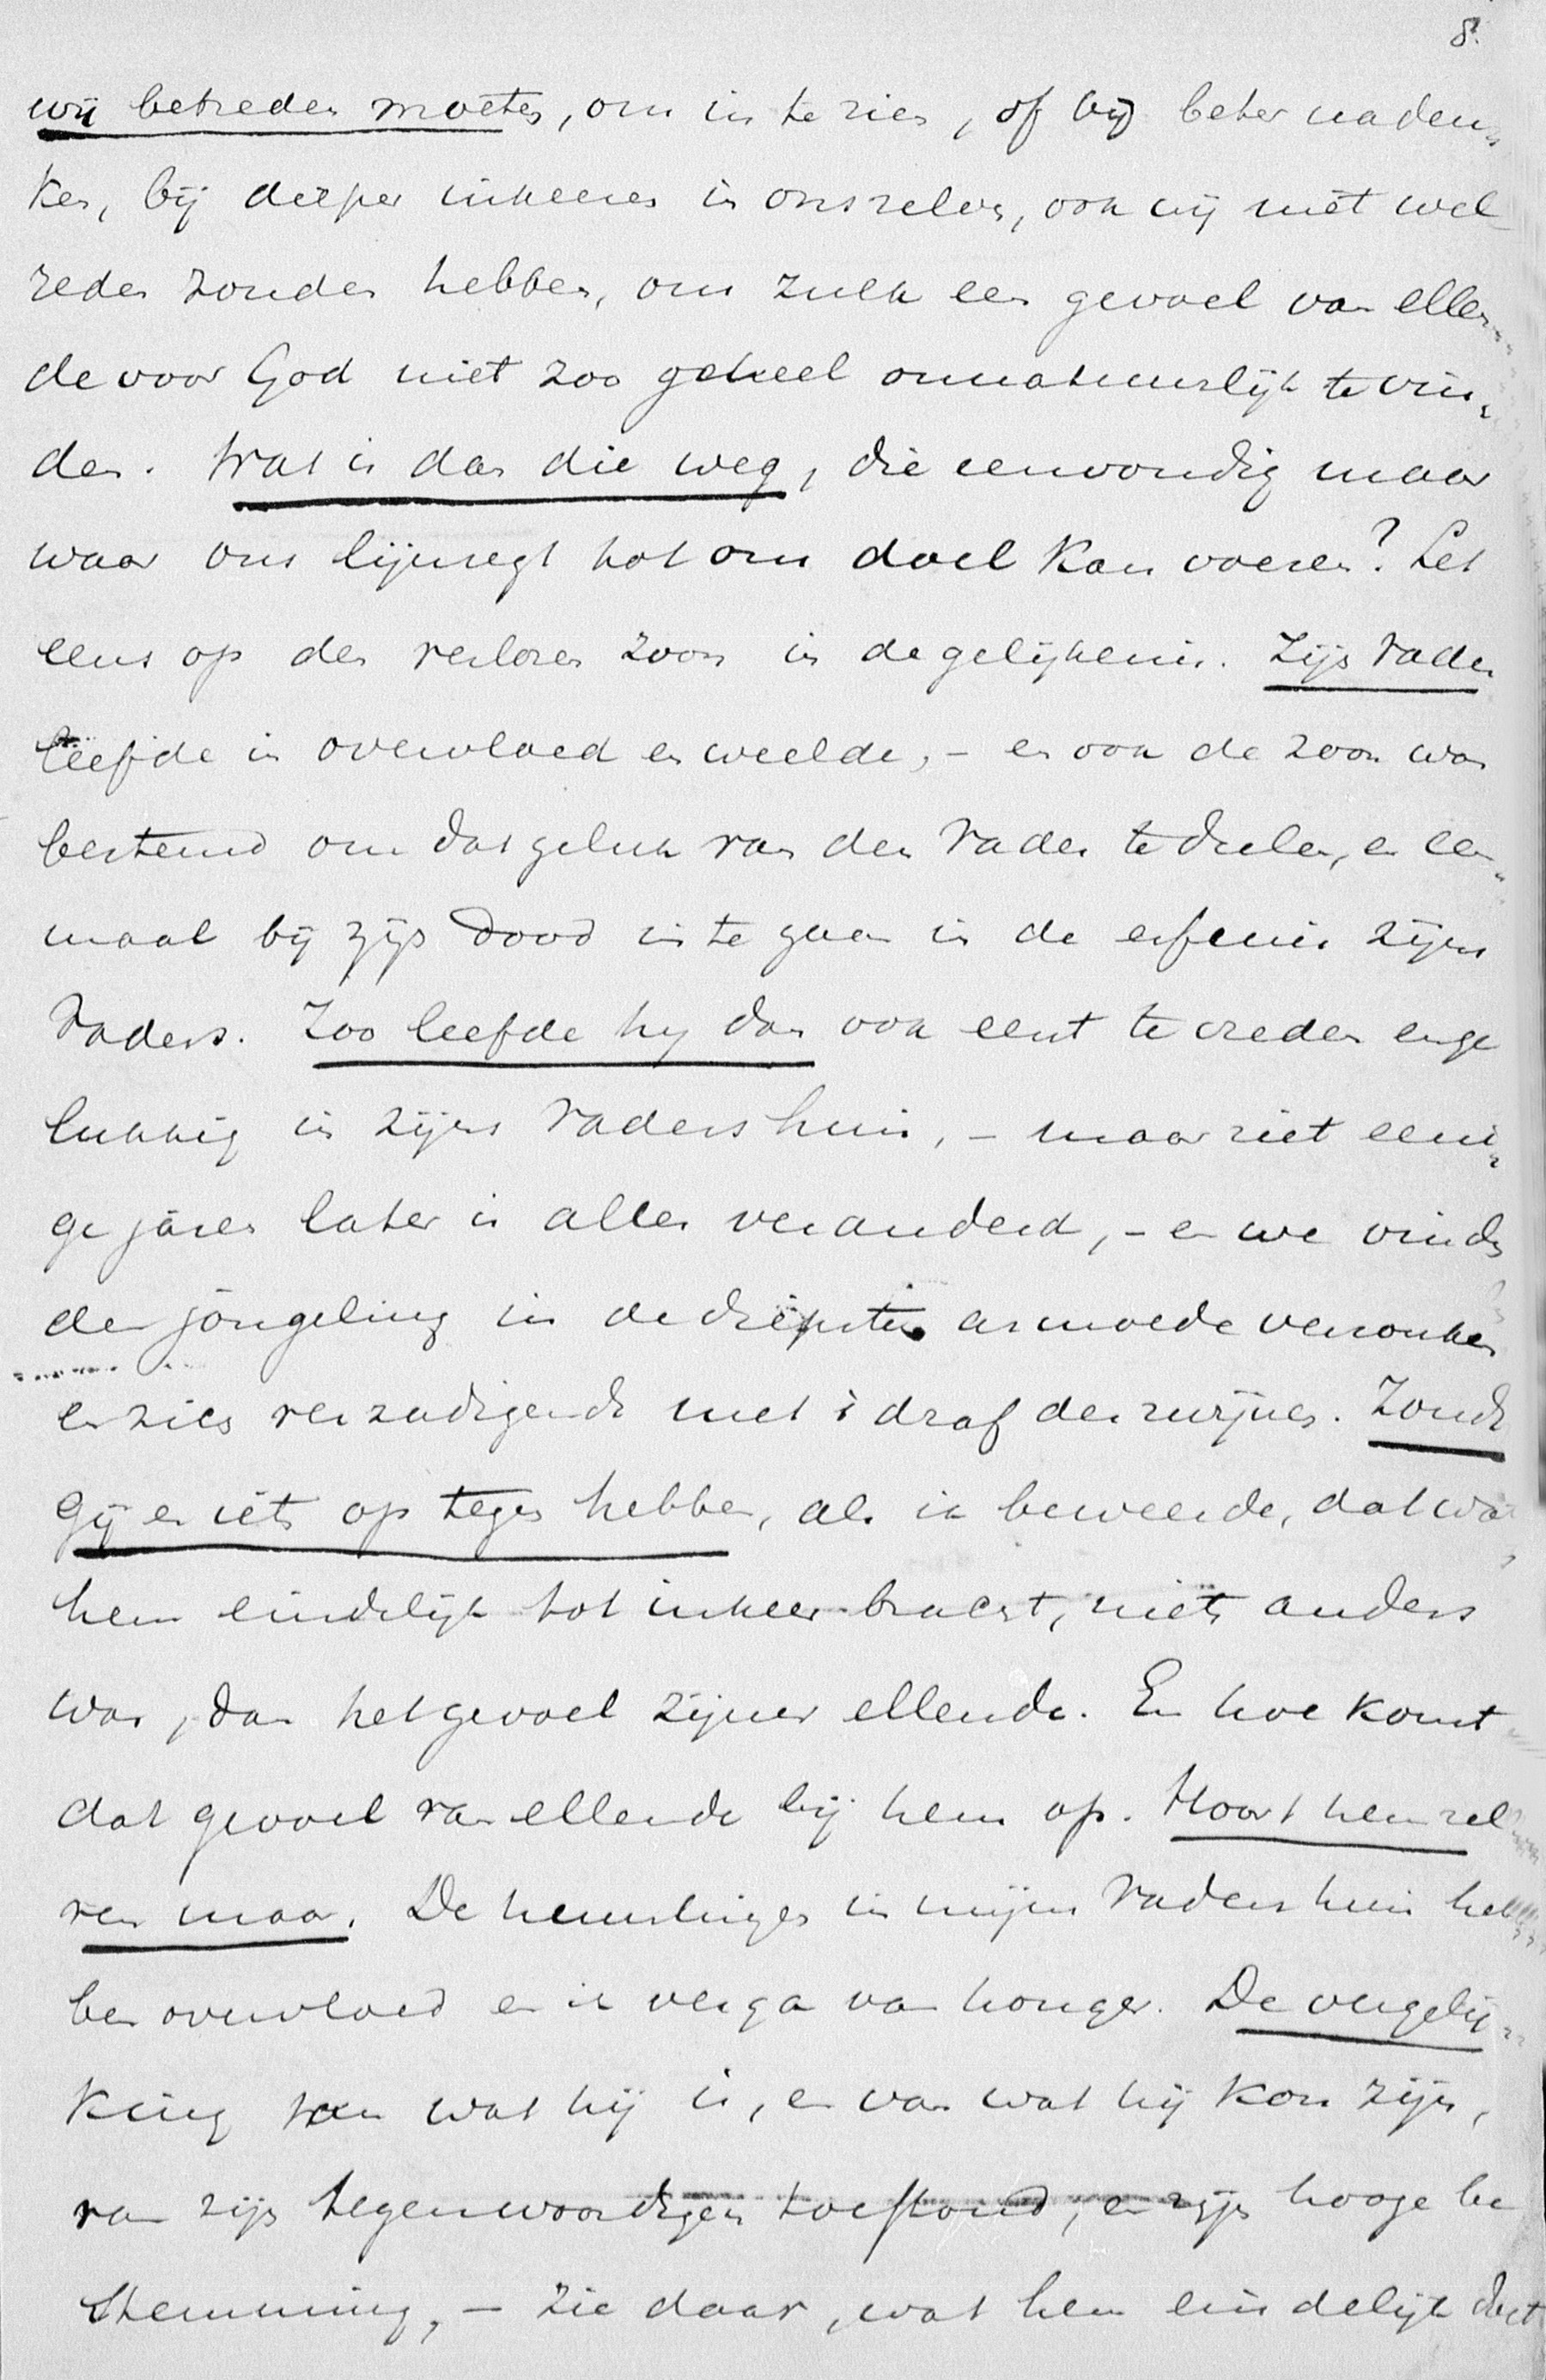 8.
wij betreden moeten, om in te zien, of bij beter naden-
ken, bij dieper inkeeren in ons zelven, ook wij niet wel
reden zouden hebben, om zulk een gevoel van ellen-
de voor God niet zoo geheel onnatuurlijk te vin-
den. Wat is dan die weg, die eenvoudig maar
waar ons lijnregt tot ons doel kan voeren? Let
eens op den verloren zoon in de gelijkenis. Zijn Vader
leefde in overvloed en weelde, - en ook de zoon was
bestemd om dat geluk van den Vader te deelen, en een-
maal bij zijn dood in te gaan in de erfenis zijns
Vaders. Zoo leefde hij dan ook eerst te vreden en ge
lukkig in zijns Vaders huis, - maar ziet eeni-
ge jaren later is alles veranderd, - en we vinden
den jongeling in de diepste armoede verzonken
en zich verzadigende met 's draf der zwijnen. Zoudt
gij er iets op tegen hebben, als ik beweerde, dat wat
hem eindelijk tot inkeer bracht, niets anders
was, dan het gevoel zijner ellende. En hoe komt
dat gevoel van ellende bij hem op. Hoort hem zel
ven maar. De huurlingen in mijns Vaders huis heb
ben overvloed en ik verga van honger. De vergelij-
king van wat hij is, en van wat hij kon zijn,
van zijn tegenwoordigen toestand, en zijn hooge be
stemming, - zie daar, wat hem eindelijk doet